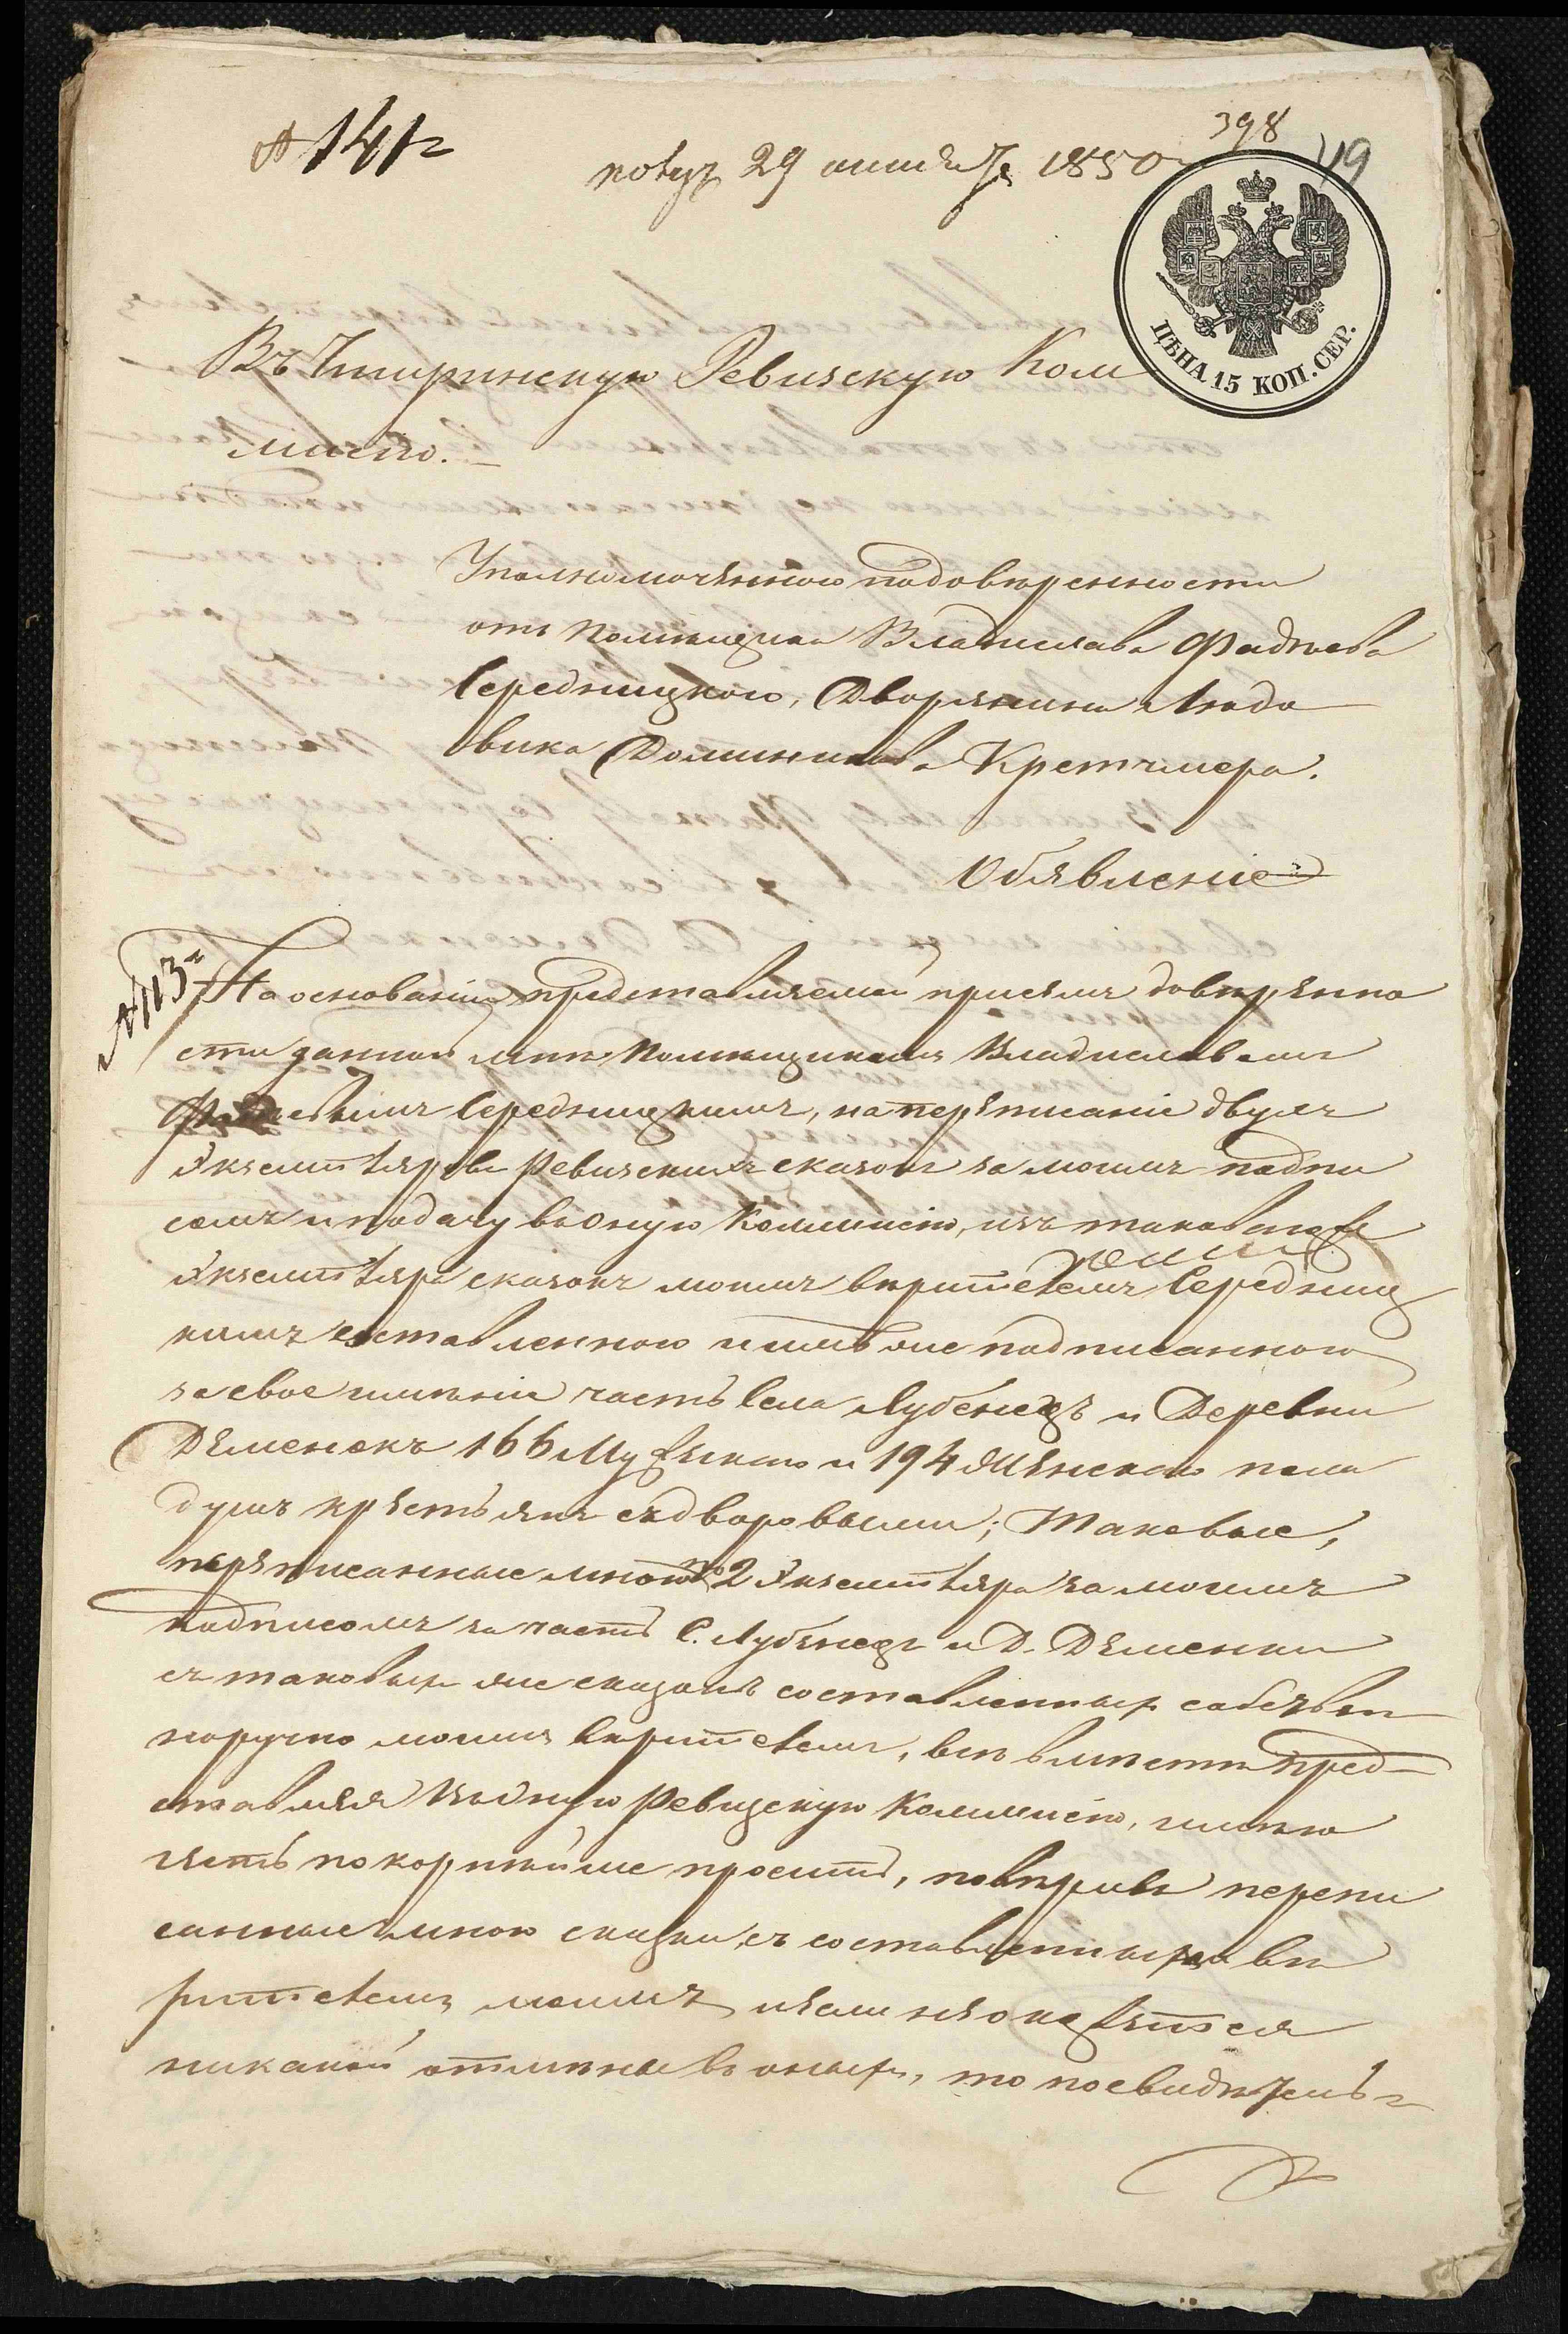 № 141
398
получ 29 октября 1850
49
ЦѢНА 15 КОП. СЕР.
Въ Чигиринскую Ревизскую Ком
мисію.
Уполномоченного по доверенности
отъ помещика Владислава Фадеева
Середницкого, Дворянина Людо
вика Доминикова Кретчмера.
Обявленіе
№ 113
На основаніи представляемой присемъ доверенно
сти данной мне помещикомъ Владиславомъ
Фадеевымъ Середницкимъ, на переписаніе двухъ
экземпляровъ Ревизскихъ сказокъ за моимъ подпи
сомъ и подачу въ оную Коммисію, изъ таковаго
экземпляра сказокъ моимъ верителемъ Середниц
кимъ составленного и имъ же подписанного
за свое именіе часть села Лубенецъ и Деревни
Деменекъ 166 Мужескаго и 194 Женскаго пола
душъ крестьянъ съ дворовыми; Таковые,
переписанные мною 2 экземпляра за моимъ
подписомъ за часть С. Лубенецъ и Д. Деменки
съ таковыхъ же сказокъ составленныхъ собствен
норучно моимъ верителемъ, все вместе пред-
ставляя въ оную Ревизскую Коммисію, имею
честь покорнейше просить, поверивъ перепи
санные мною сказки, съ составленными ве
рителемъ моимъ и если не окажется
никакой отмены въ оныхъ, то по свидетель-